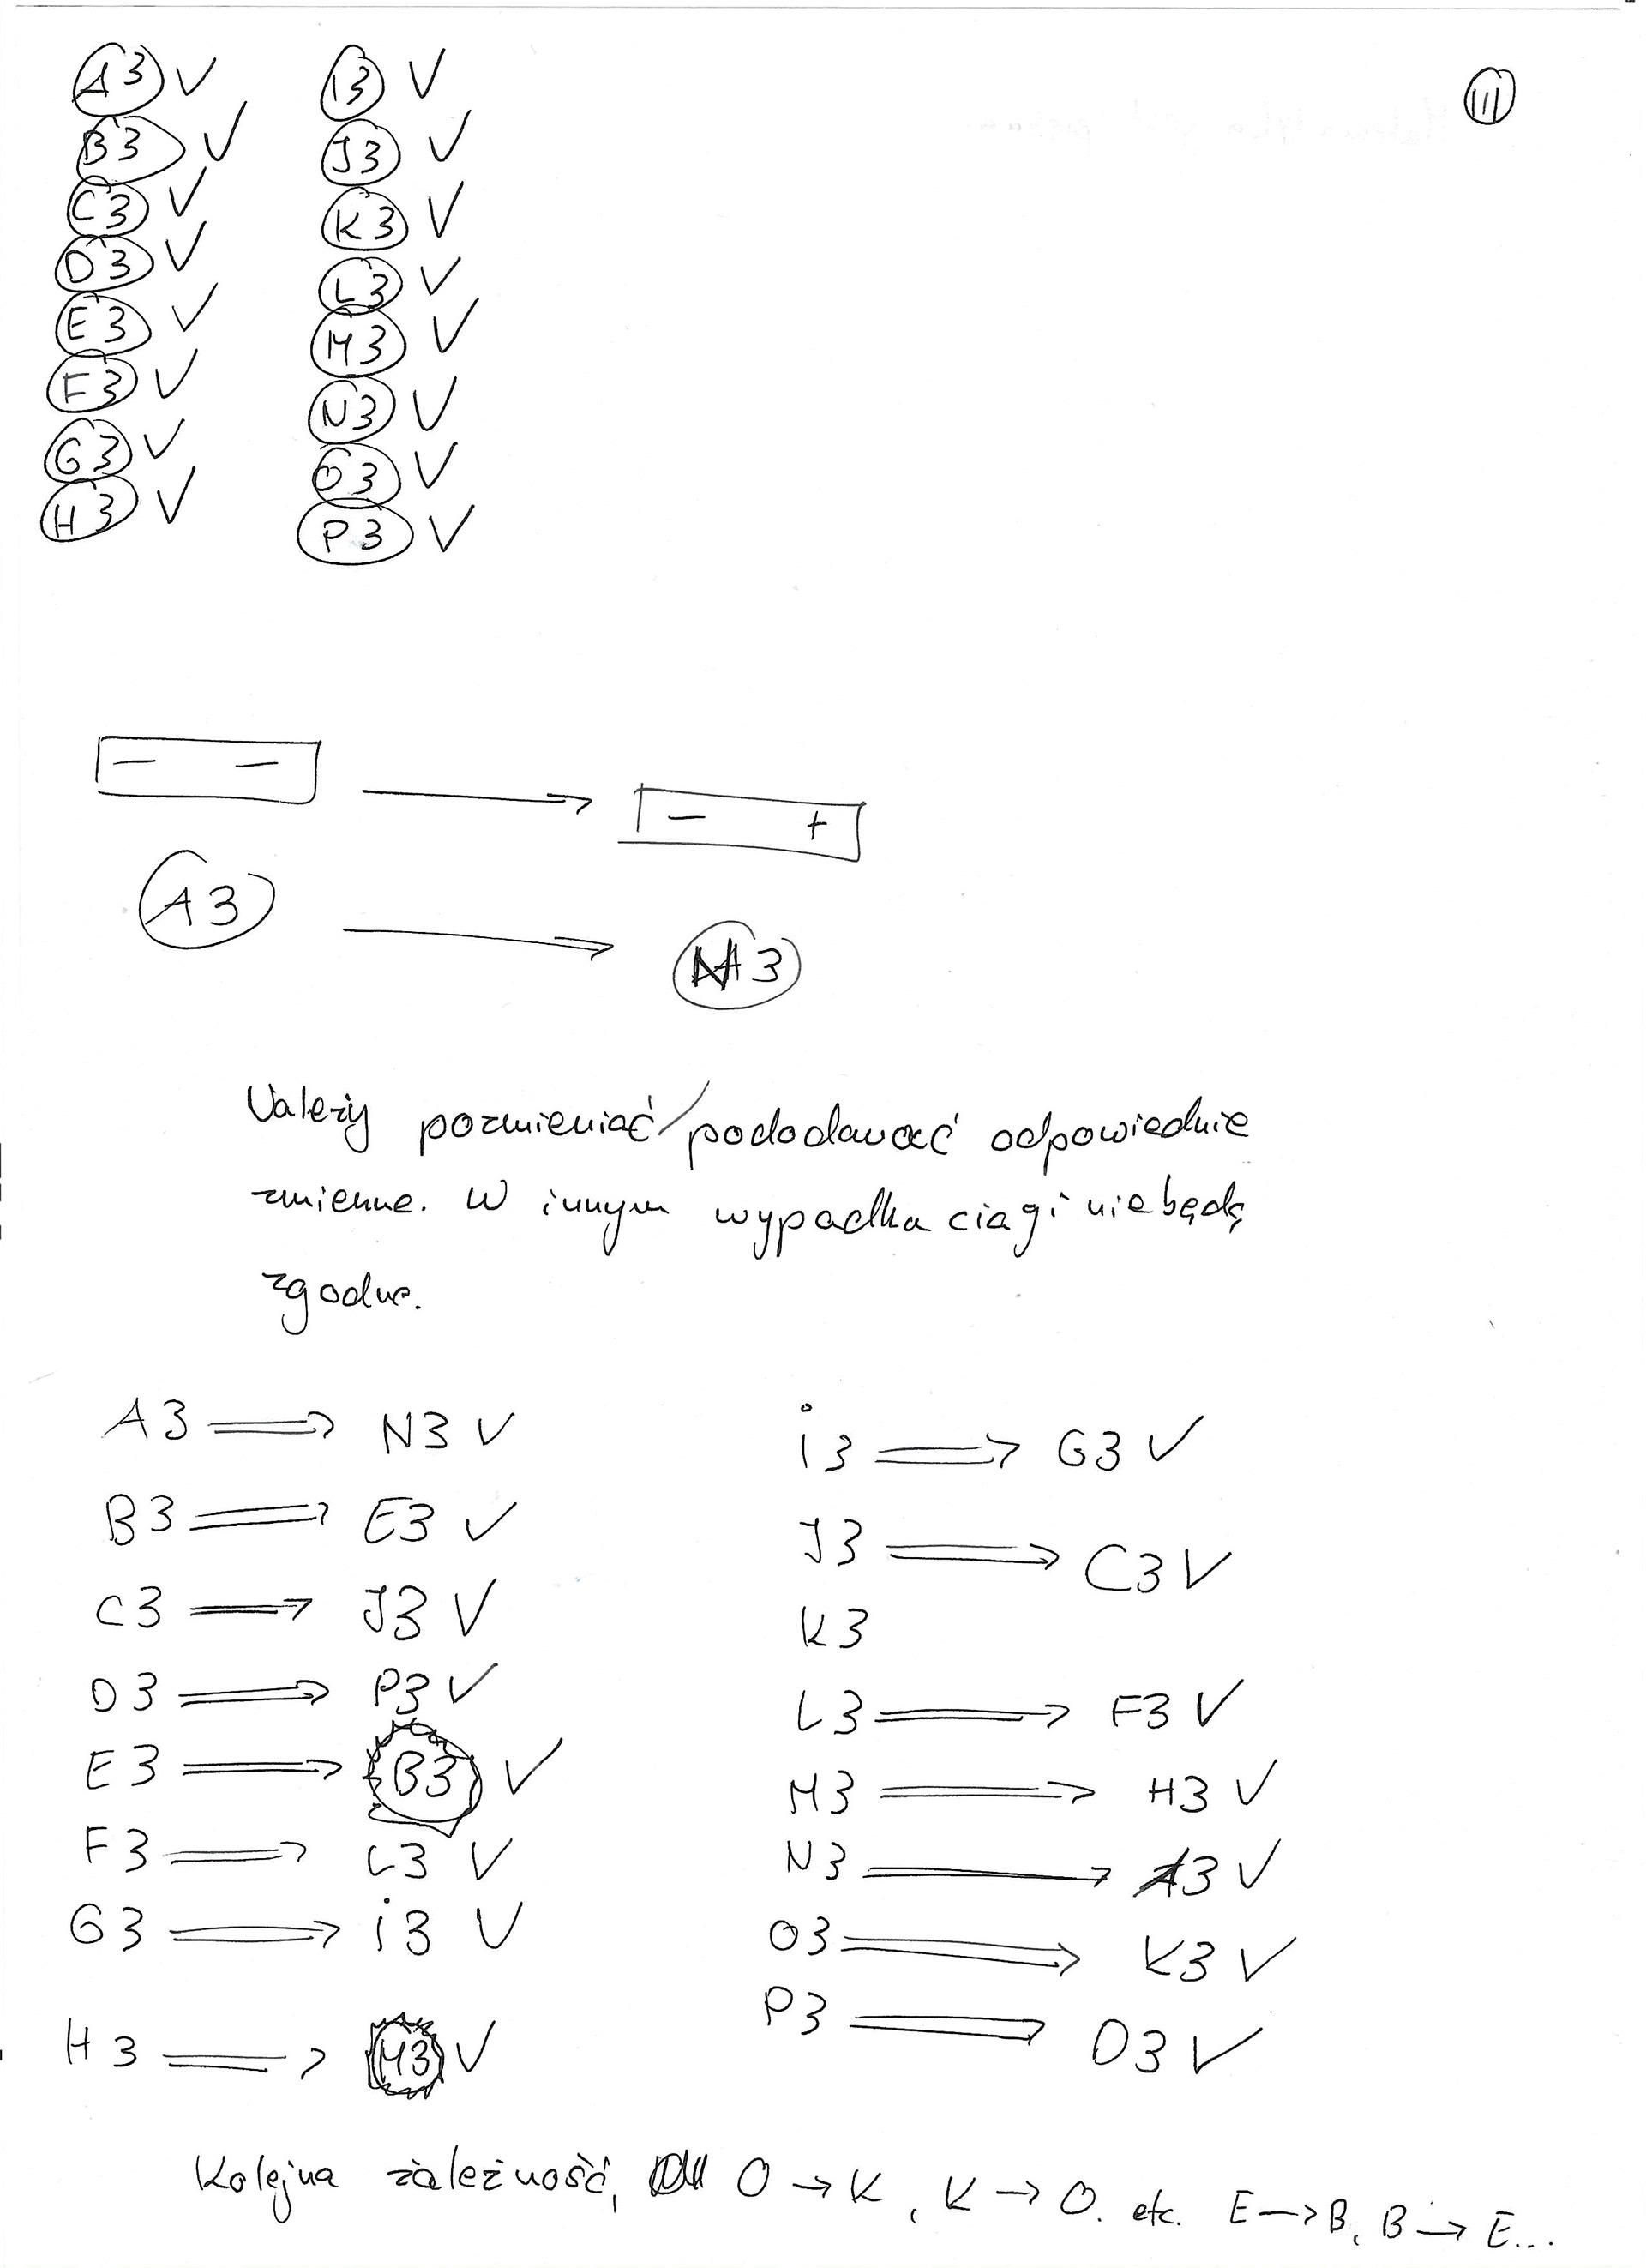 III
A3 ✓ I3 ✓
B3 ✓ J3 ✓
C3 ✓ K3 ✓
D3 ✓ L3 ✓
E3 ✓ M3 ✓
F3 ✓ N3 ✓
G3 ✓ O3 ✓
H3 ✓ P3 ✓
— — → — +
A3 → N3
Należy pozmieniać/pododawać odpowiednie
zmienne. W innym wypadku ciagi nie będą
zgodne.
A3 ⇒ N3 ✓
B3 ⇒ E3 ✓
C3 ⇒ J3 ✓
D3 ⇒ P3 ✓
E3 ⇒ B3 ✓
F3 ⇒ L3 ✓
G3 ⇒ i3 ✓
H3 ⇒ M3 ✓
i3 ⇒ G3 ✓
J3 ⇒ C3 ✓
K3
L3 ⇒ F3 ✓
M3 ⇒ H3 ✓
N3 ⇒ A3 ✓
O3 ⇒ K3 ✓
P3 ⇒ D3 ✓
Kolejna zależność, O → K, K → O. etc. E → B, B → E...